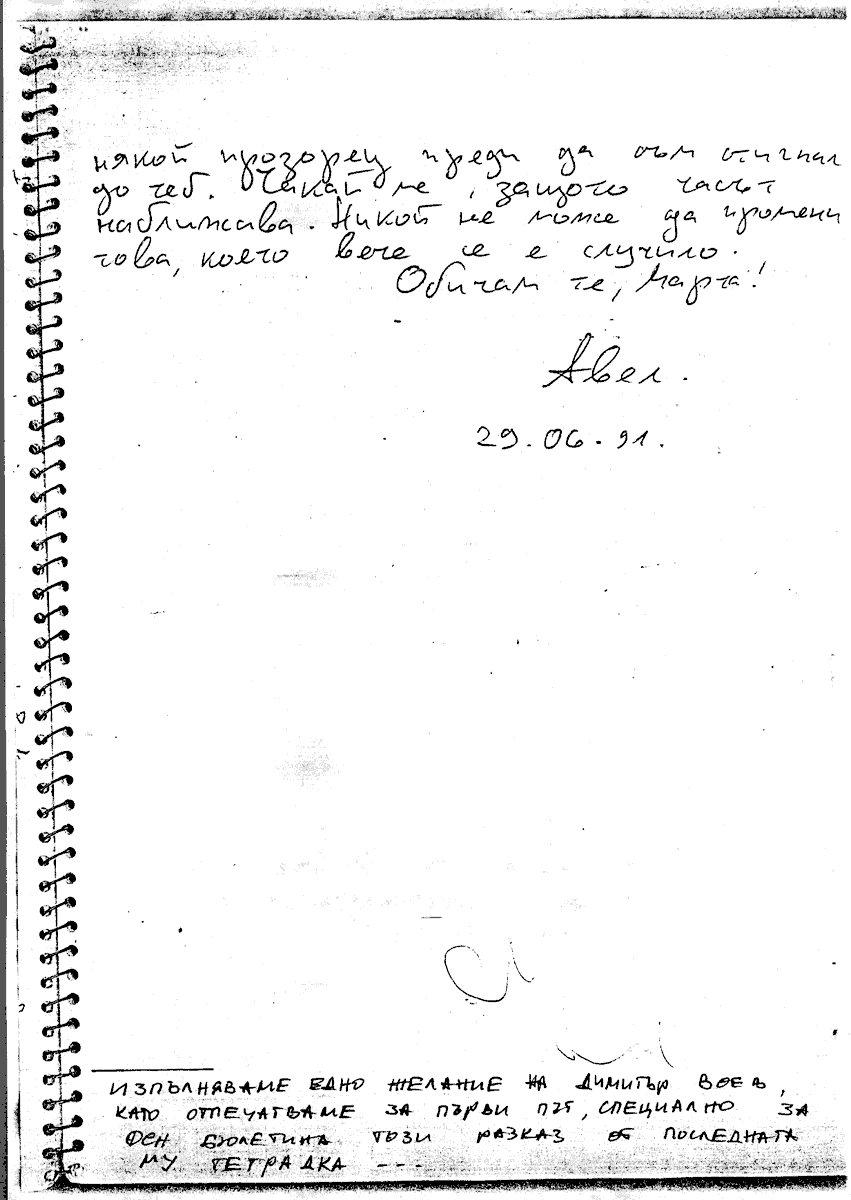 някой прозорец преди да съм стигнал
до теб. Чакай ме, защото часът
наближава. Никой не може да промени
това, което вече се е случило.
Обичам те, Марта!
Авел.
29.06.91.
ИЗПЪЛНЯВАМЕ ЕДНО ЖЕЛАНИЕ НА ДИМИТЪР ВОЕВ,
КАТО ОТПЕЧАТВАМЕ ЗА ПЪРВИ ПЪТ, СПЕЦИАЛНО ЗА
ФЕН БЮЛЕТИНА ТОЗИ РАЗКАЗ ОТ ПОСЛЕДНАТА
МУ ТЕТРАДКА ---